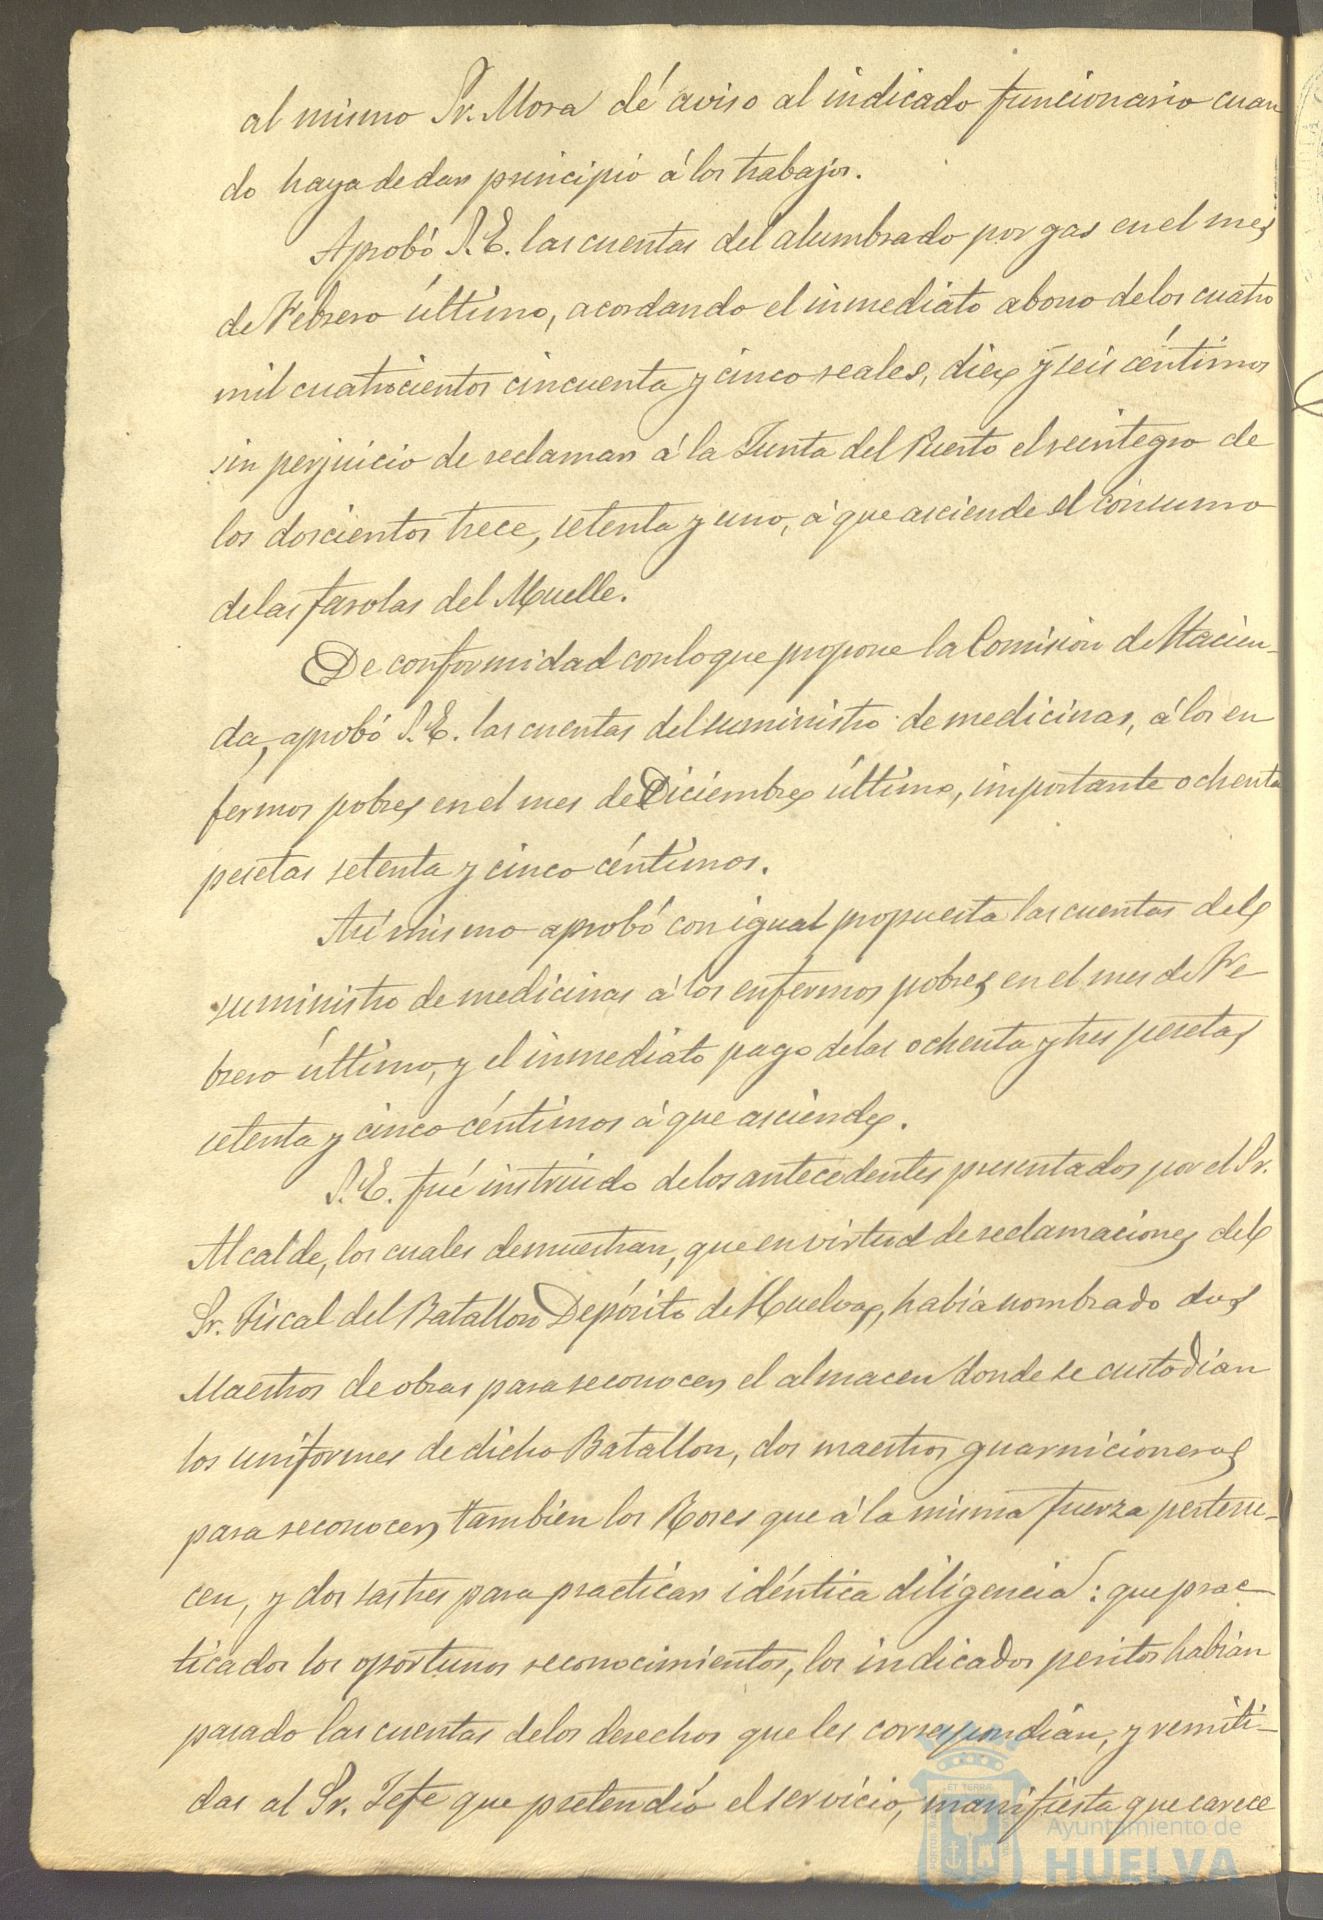 al mismo Sr. Mora dé aviso al indicado funcionario cuan
do haya de dar principio á los trabajos.
Aprobó S.E. las cuentas del alumbrado por gas en el mes
de Febrero último, acordando el inmediato abono de los cuatro
mil cuatrocientos cincuenta y cinco reales, diez y seis céntimos
sin perjuicio de reclamar á la Junta del Puerto el reintegro de
los doscientos trece, setenta y uno, á que asciende el consumo
de las farolas del Muelle.
De conformidad con lo que propone la Comisión de Hacien-
da, aprobó S.E. las cuentas del suministro de medicinas, á los en
fermos pobres en el mes de Diciembre último, importante ochenta
pesetas setenta y cinco céntimos.
Así mismo aprobó con igual propuesta las cuentas del
suministro de medicinas á los enfermos pobres en el mes de Fe-
brero último, y el inmediato pago de las ochenta y tres pesetas
setenta y cinco céntimos á que asciende.
S.E. fué instruido de los antecedentes presentados por el Sr.
Alcalde, los cuales demuestran, que en virtud de reclamaciones del
Sr. Fiscal del Batallon Depósito de Huelva, había nombrado dos
Maestros de obras para reconocer el almacen donde se custodian
los uniformes de dicho Batallon, dos maestros guarnicioneros
para reconocer tambien los Roses que á la misma fuerza pertene-
cen, y dos sastres para practicar idéntica diligencia: que prac-
ticados los oportunos reconocimientos, los indicados peritos habían
pasado las cuentas de los derechos que les correspondían, y remiti-
das al Sr. Jefe que pretendió el servicio, manifiesta que carece
ET TERRÆ
Ayuntamiento de
HUELVA